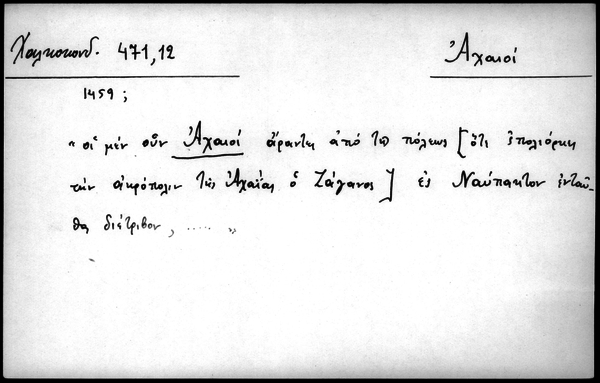 Χαλκοκονδ. 471,12
Ἀχαιοί
1459 ;
" οἱ μὲν οὖν Ἀχαιοί ἄραντες ἀπό τῆς πόλεως [ὅτι ἐπολιόρκει
τὴν ἀκρόπολιν τῆς Ἀχαΐας ὁ Ζάγανος] ἐς Ναύπακτον ἐνταῦ-
θα διέτριβον, ..... "